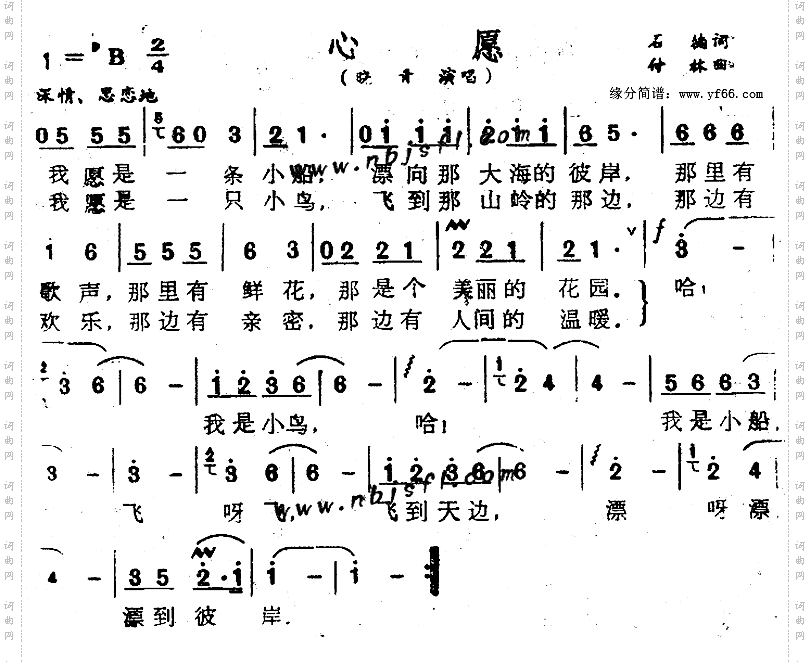 心 愿
1=♭B 2/4
(晓青 演唱)
付林曲
深情、思恋地
缘分简谱:www.yf66.com
05 55 | 60 3 | 21· | 01 11 | 211 | 65· | 666 |
我愿是一条小船, 漂向那大海的彼岸, 那里有
我愿是一只小鸟, 飞到那山岭的那边, 那边有
www.nbjsfl.com
1 6 | 555 | 6 3 | 02 21 | 221 | 21· | 3 -
歌声,那里有鲜花,那是个美丽的花园。 哈!
欢乐,那边有亲密,那边有人间的温暖。
3 6 | 6 - | 12 36 | 6 - | 2 - | 2 4 | 4 - | 56 63
我是小鸟, 哈! 我是小船,
3 - | 3 - | 3 6 | 6 - | 12 36 | 6 - | 2 - | 2 4
飞 呀飞, 飞到天边, 漂 呀漂
www.nbjsfl.com
4 - | 35 2·1 | 1 - | 1 -
漂到彼岸.
词曲网